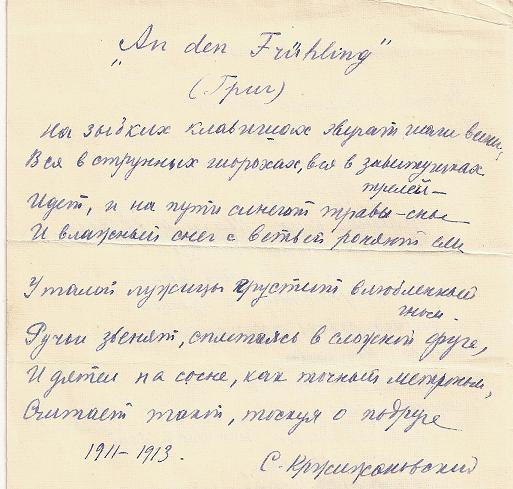 „An den Frühling"
(Григ)
На зыбких клавишах звучат шаги весны:
Вся в струнных шорохах, вся в завитушках
трелей —
Идет, и на пути синеют травы-сны
И влажный снег с ветвей роняют ели
У талой лужицы грустит влюбленный
гном.
Ручьи звенят, сплетаясь в сложной фуге,
И дятел на сосне, как точный метроном,
Считает такт, тоскуя о подруге
1911–1913.
С. Кржижановский